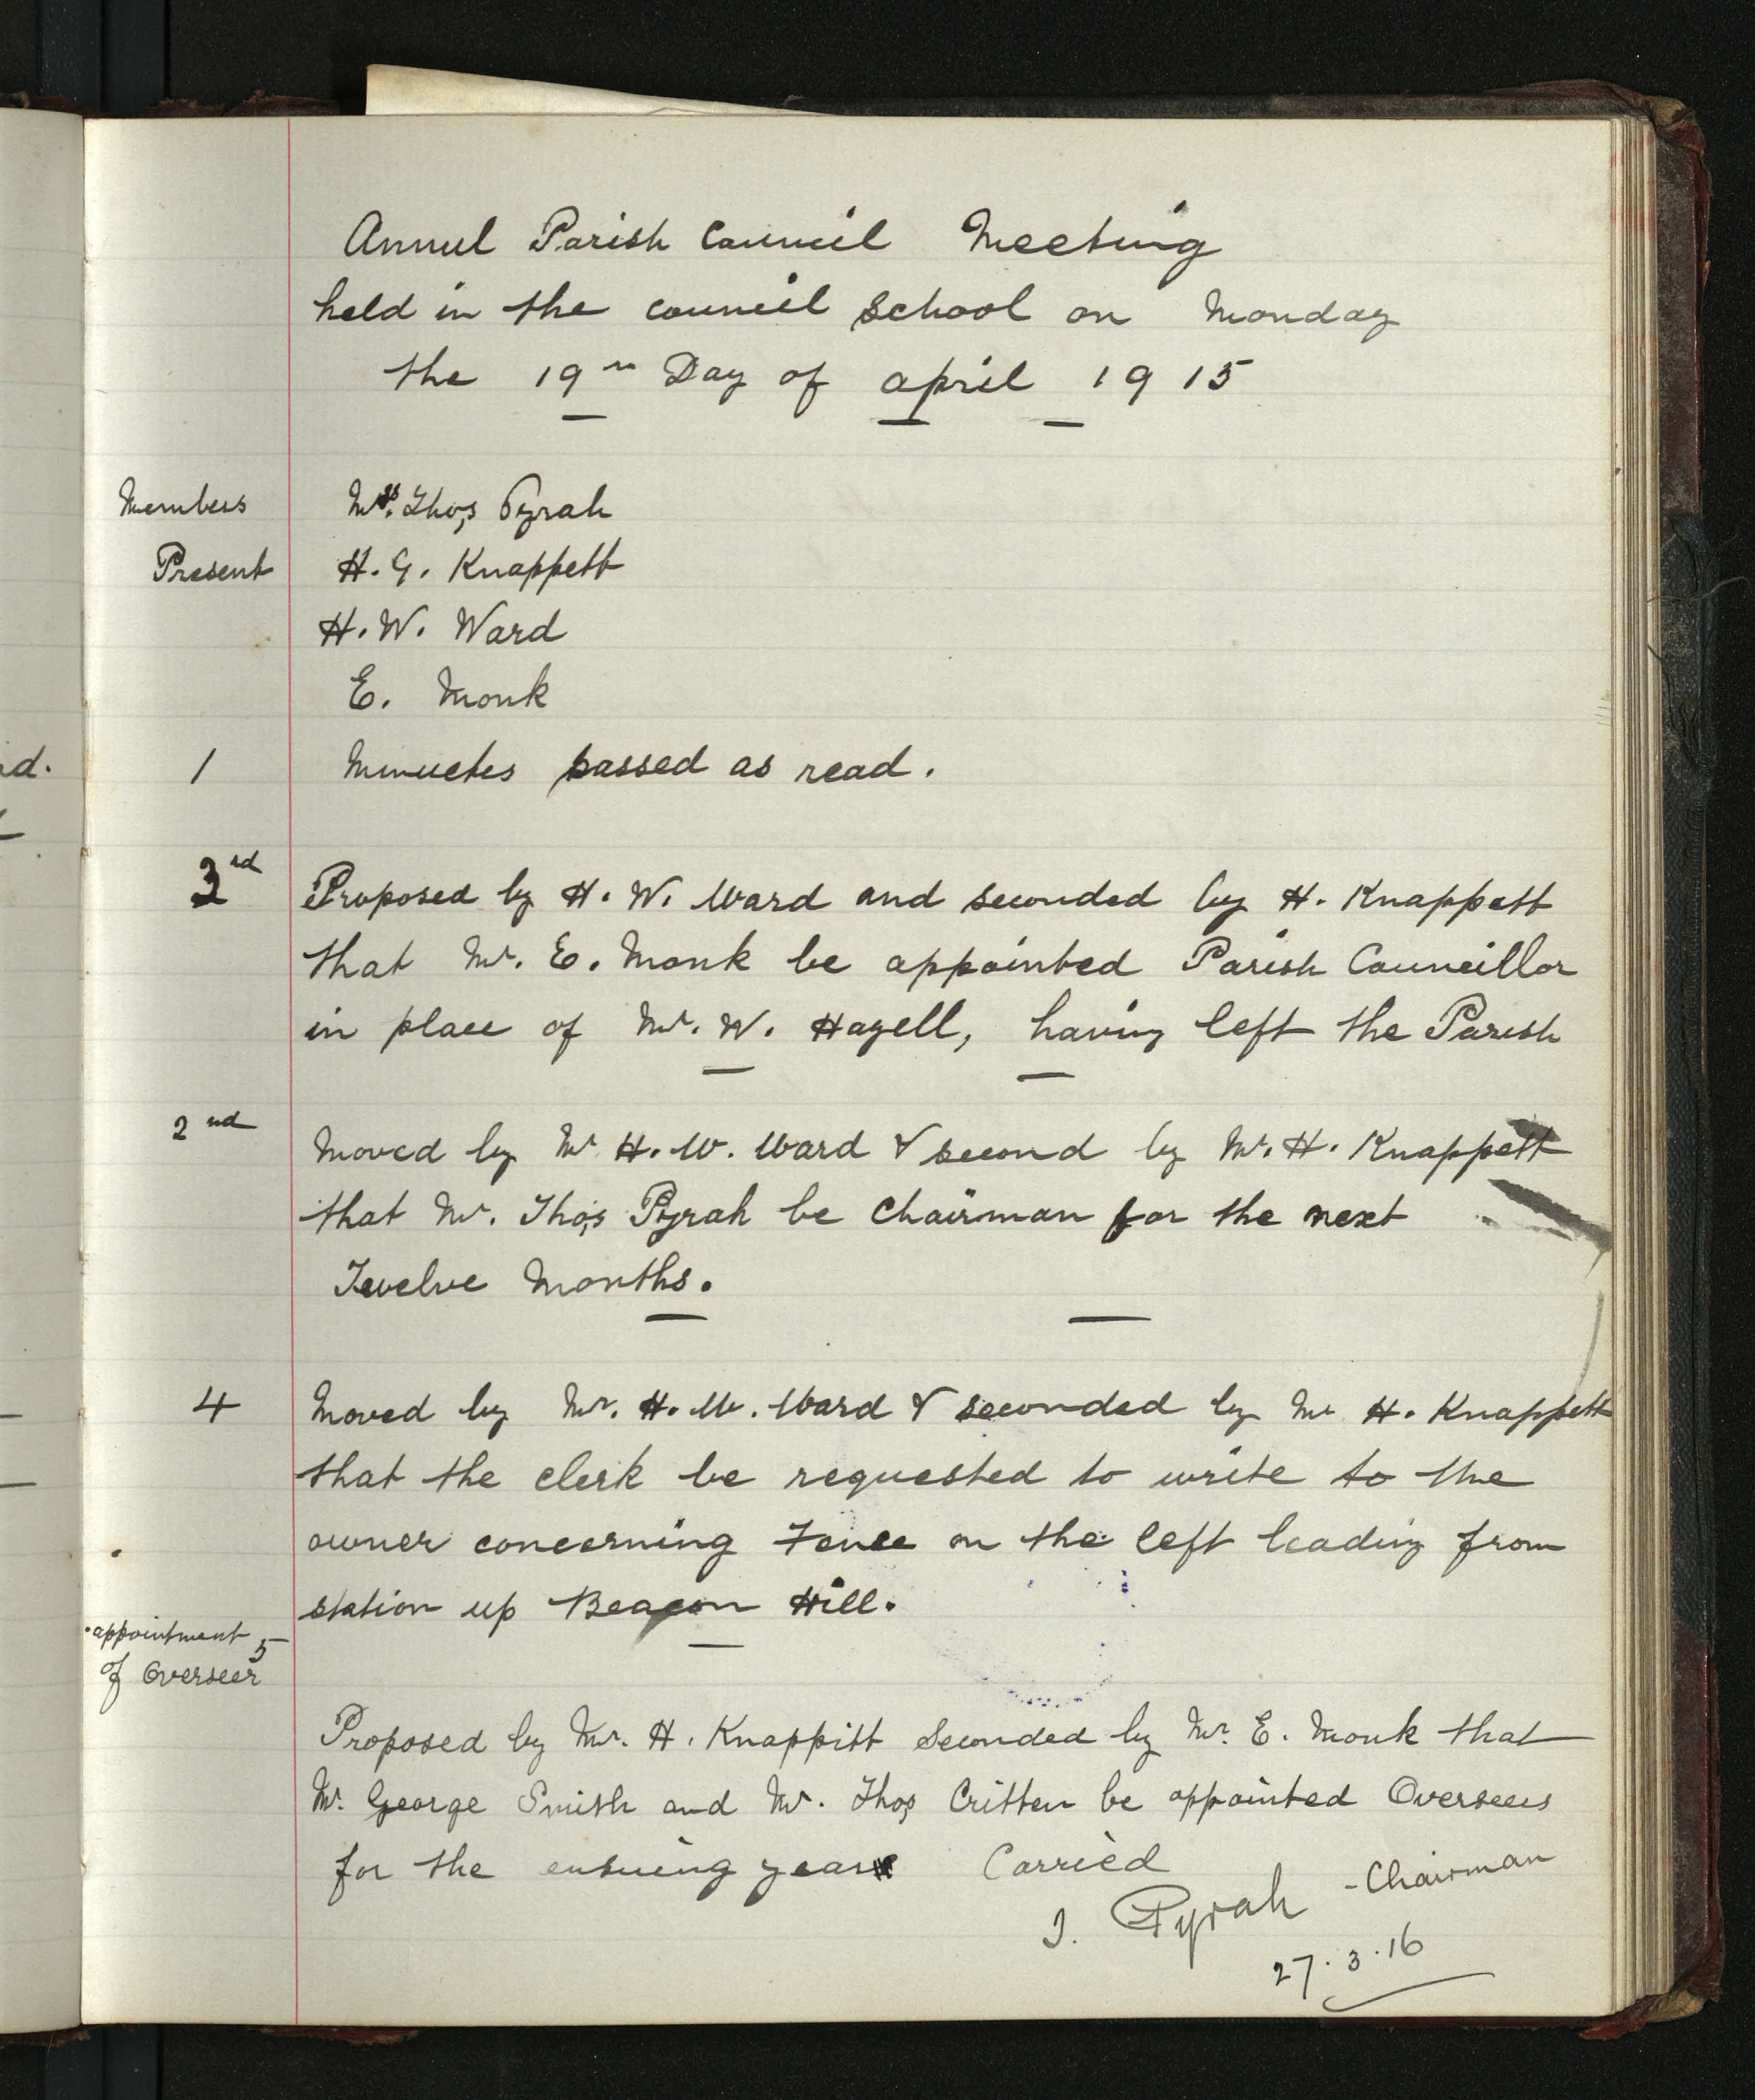 Annul Parish Council Meeting
held in the council School on Monday
the 19th Day of april 1915
Members Mrs. Thos Pyrah
Present H. G. Knappett
H. W. Ward
E. Monk
1 Minuetes passed as read.
3rd Proposed by H. W. Ward and seconded by H. Knappett
that Mr. E. Monk be appointed Parish Councillor
in place of Mr. W. Hazell, having left the Parish
2nd Moved by Mr H. W. Ward & second by Mr. H. Knappett
that Mr. Thos Pyrah be Chairman for the next
Twelve Months.
4 Moved by Mr. H. W. Ward & seconded by Mr H. Knappett
that the clerk be requested to write to the
owner concerning Fence on the left leading from
station up Beacon Hill.
appointment 5
of Overseer
Proposed by Mr. H. Knappitt Seconded by Mr. E. Monk that
Mr. George Smith and Mr. Thos Critten be appointed Overseers
for the ensueing year Carried
T. Pyrah - Chairman
27.3.16